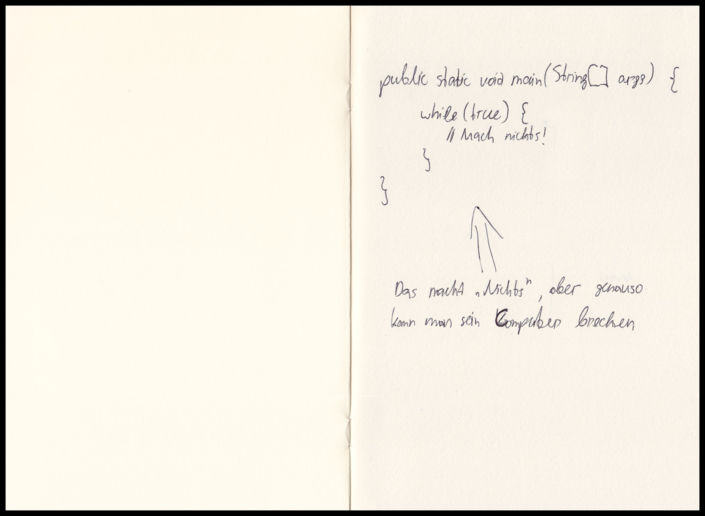 public static void main(String[] args) {
while(true) {
// Mach nichts!
}
}
Das macht „Nichts", aber genauso
kann man sein Computer brechen